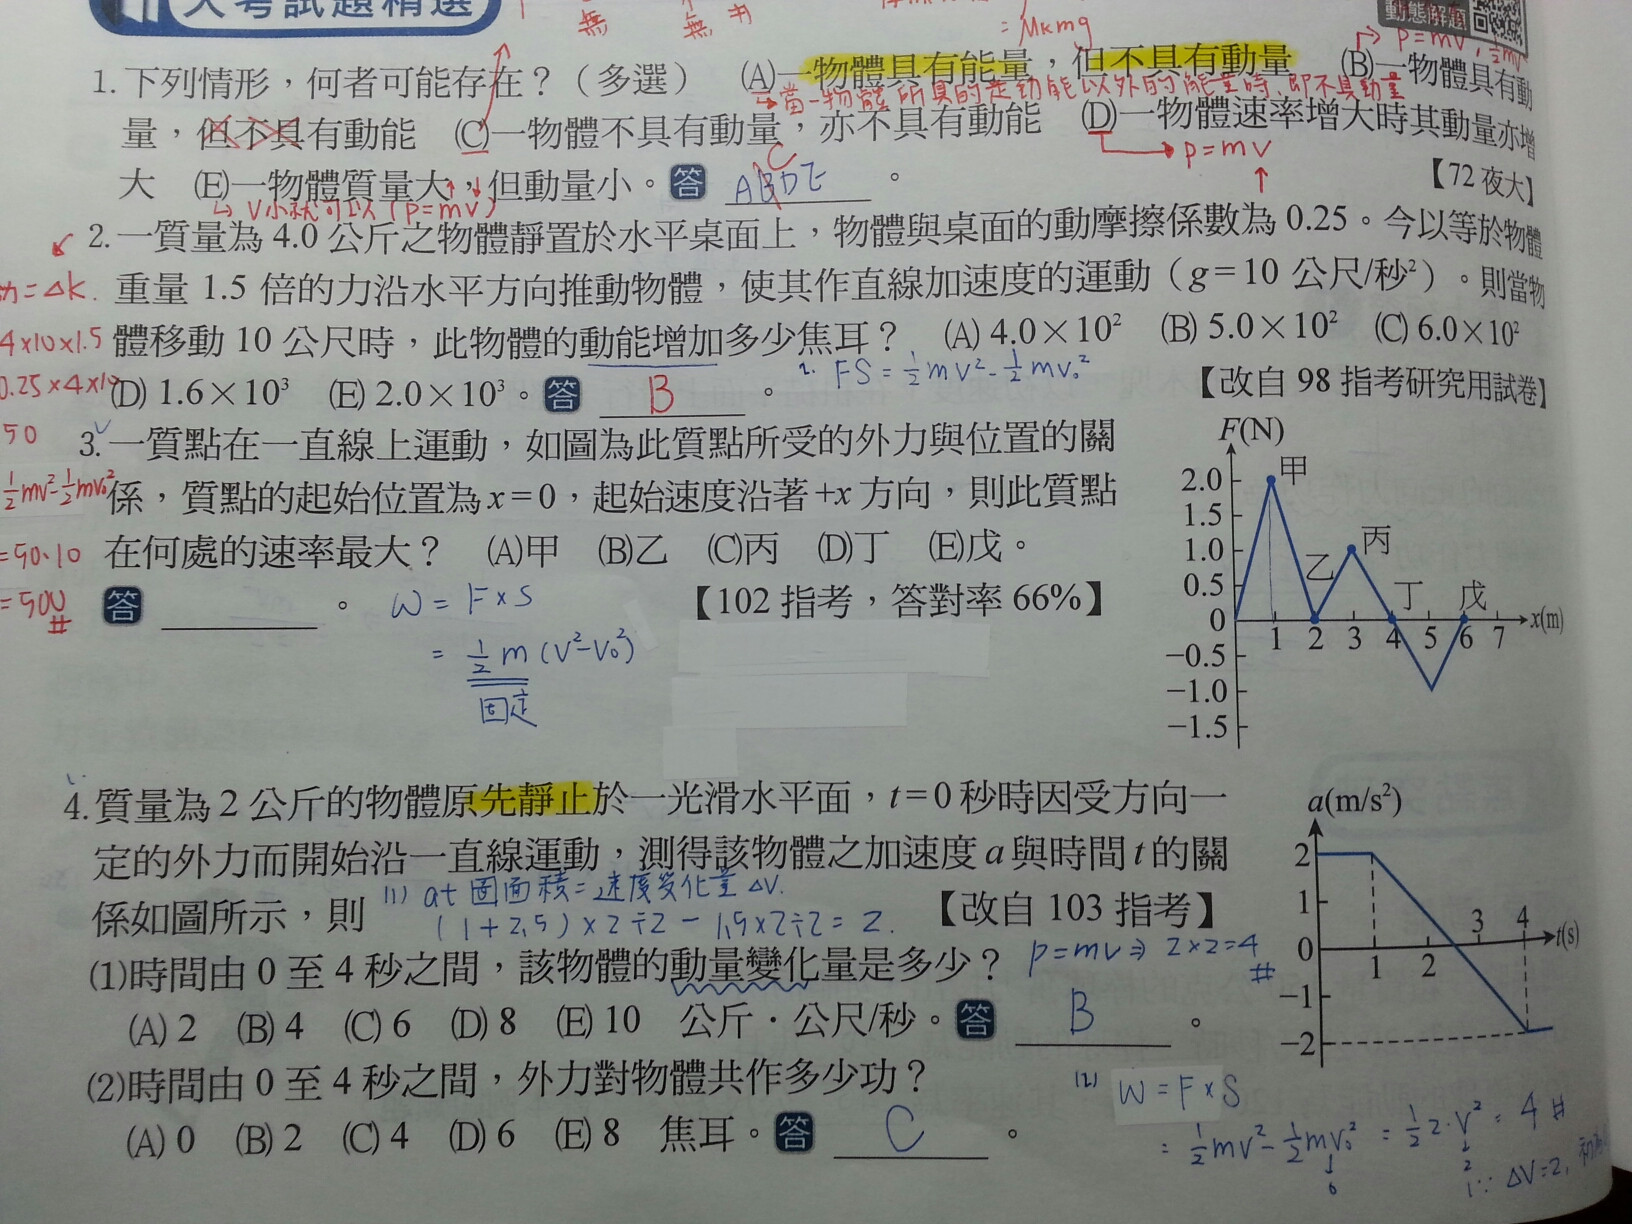 大考試題精選
動態解題
無 無
= μkmg
p=mv,
1.下列情形，何者可能存在？（多選） (A)一物體具有能量，但不具有動量 (B)一物體具有動
→當一物體所具的是動能以外的能量時，即不具動量
量，但不具有動能 (C)一物體不具有動量，亦不具有動能 (D)一物體速率增大時其動量亦增
p=mv
大 (E)一物體質量大，但動量小。答 ABDE 。 【72 夜大】
C
↳ V小就可以(p=mv)
2.一質量為 4.0 公斤之物體靜置於水平桌面上，物體與桌面的動摩擦係數為 0.25。今以等於物體
重量 1.5 倍的力沿水平方向推動物體，使其作直線加速度的運動（g＝10 公尺/秒²）。則當物
體移動 10 公尺時，此物體的動能增加多少焦耳？ (A) 4.0×10² (B) 5.0×10² (C) 6.0×10²
(D) 1.6×10³ (E) 2.0×10³。答 B 。 【改自 98 指考研究用試卷】
2. FS = ½mv² - ½mv₀²
功=ΔK.
4×10×1.5
0.25×4×10
50
½mv²-½mv₀²
=50·10
=500 #
3.一質點在一直線上運動，如圖為此質點所受的外力與位置的關
係，質點的起始位置為 x＝0，起始速度沿著+x 方向，則此質點
在何處的速率最大？ (A)甲 (B)乙 (C)丙 (D)丁 (E)戊。
答 。 【102 指考，答對率 66%】
W = F×S
= ½m(V²-V₀²)
固定
F(N)
2.0
1.5
1.0
0.5
0
−0.5
−1.0
−1.5
甲
乙
丙
丁
戊
1 2 3 4 5 6 7 x(m)
4.質量為 2 公斤的物體原先靜止於一光滑水平面，t＝0 秒時因受方向一
定的外力而開始沿一直線運動，測得該物體之加速度 a 與時間 t 的關
係如圖所示，則 【改自 103 指考】
(1) at圖面積=速度變化量 ΔV.
(1+2.5)×2÷2 - 1.5×2÷2 = 2.
⑴時間由 0 至 4 秒之間，該物體的動量變化量是多少？
p=mv ⇒ 2×2=4 #
(A) 2 (B) 4 (C) 6 (D) 8 (E) 10 公斤．公尺/秒。答 B 。
⑵時間由 0 至 4 秒之間，外力對物體共作多少功？
(A) 0 (B) 2 (C) 4 (D) 6 (E) 8 焦耳。答 C 。
(2) W = F×S
= ½mv² - ½mv₀² = ½2·V² = 4 #
0
2
∵ ΔV=2,
a(m/s²)
2
1
0
−1
−2
1 2 3 4 t(s)